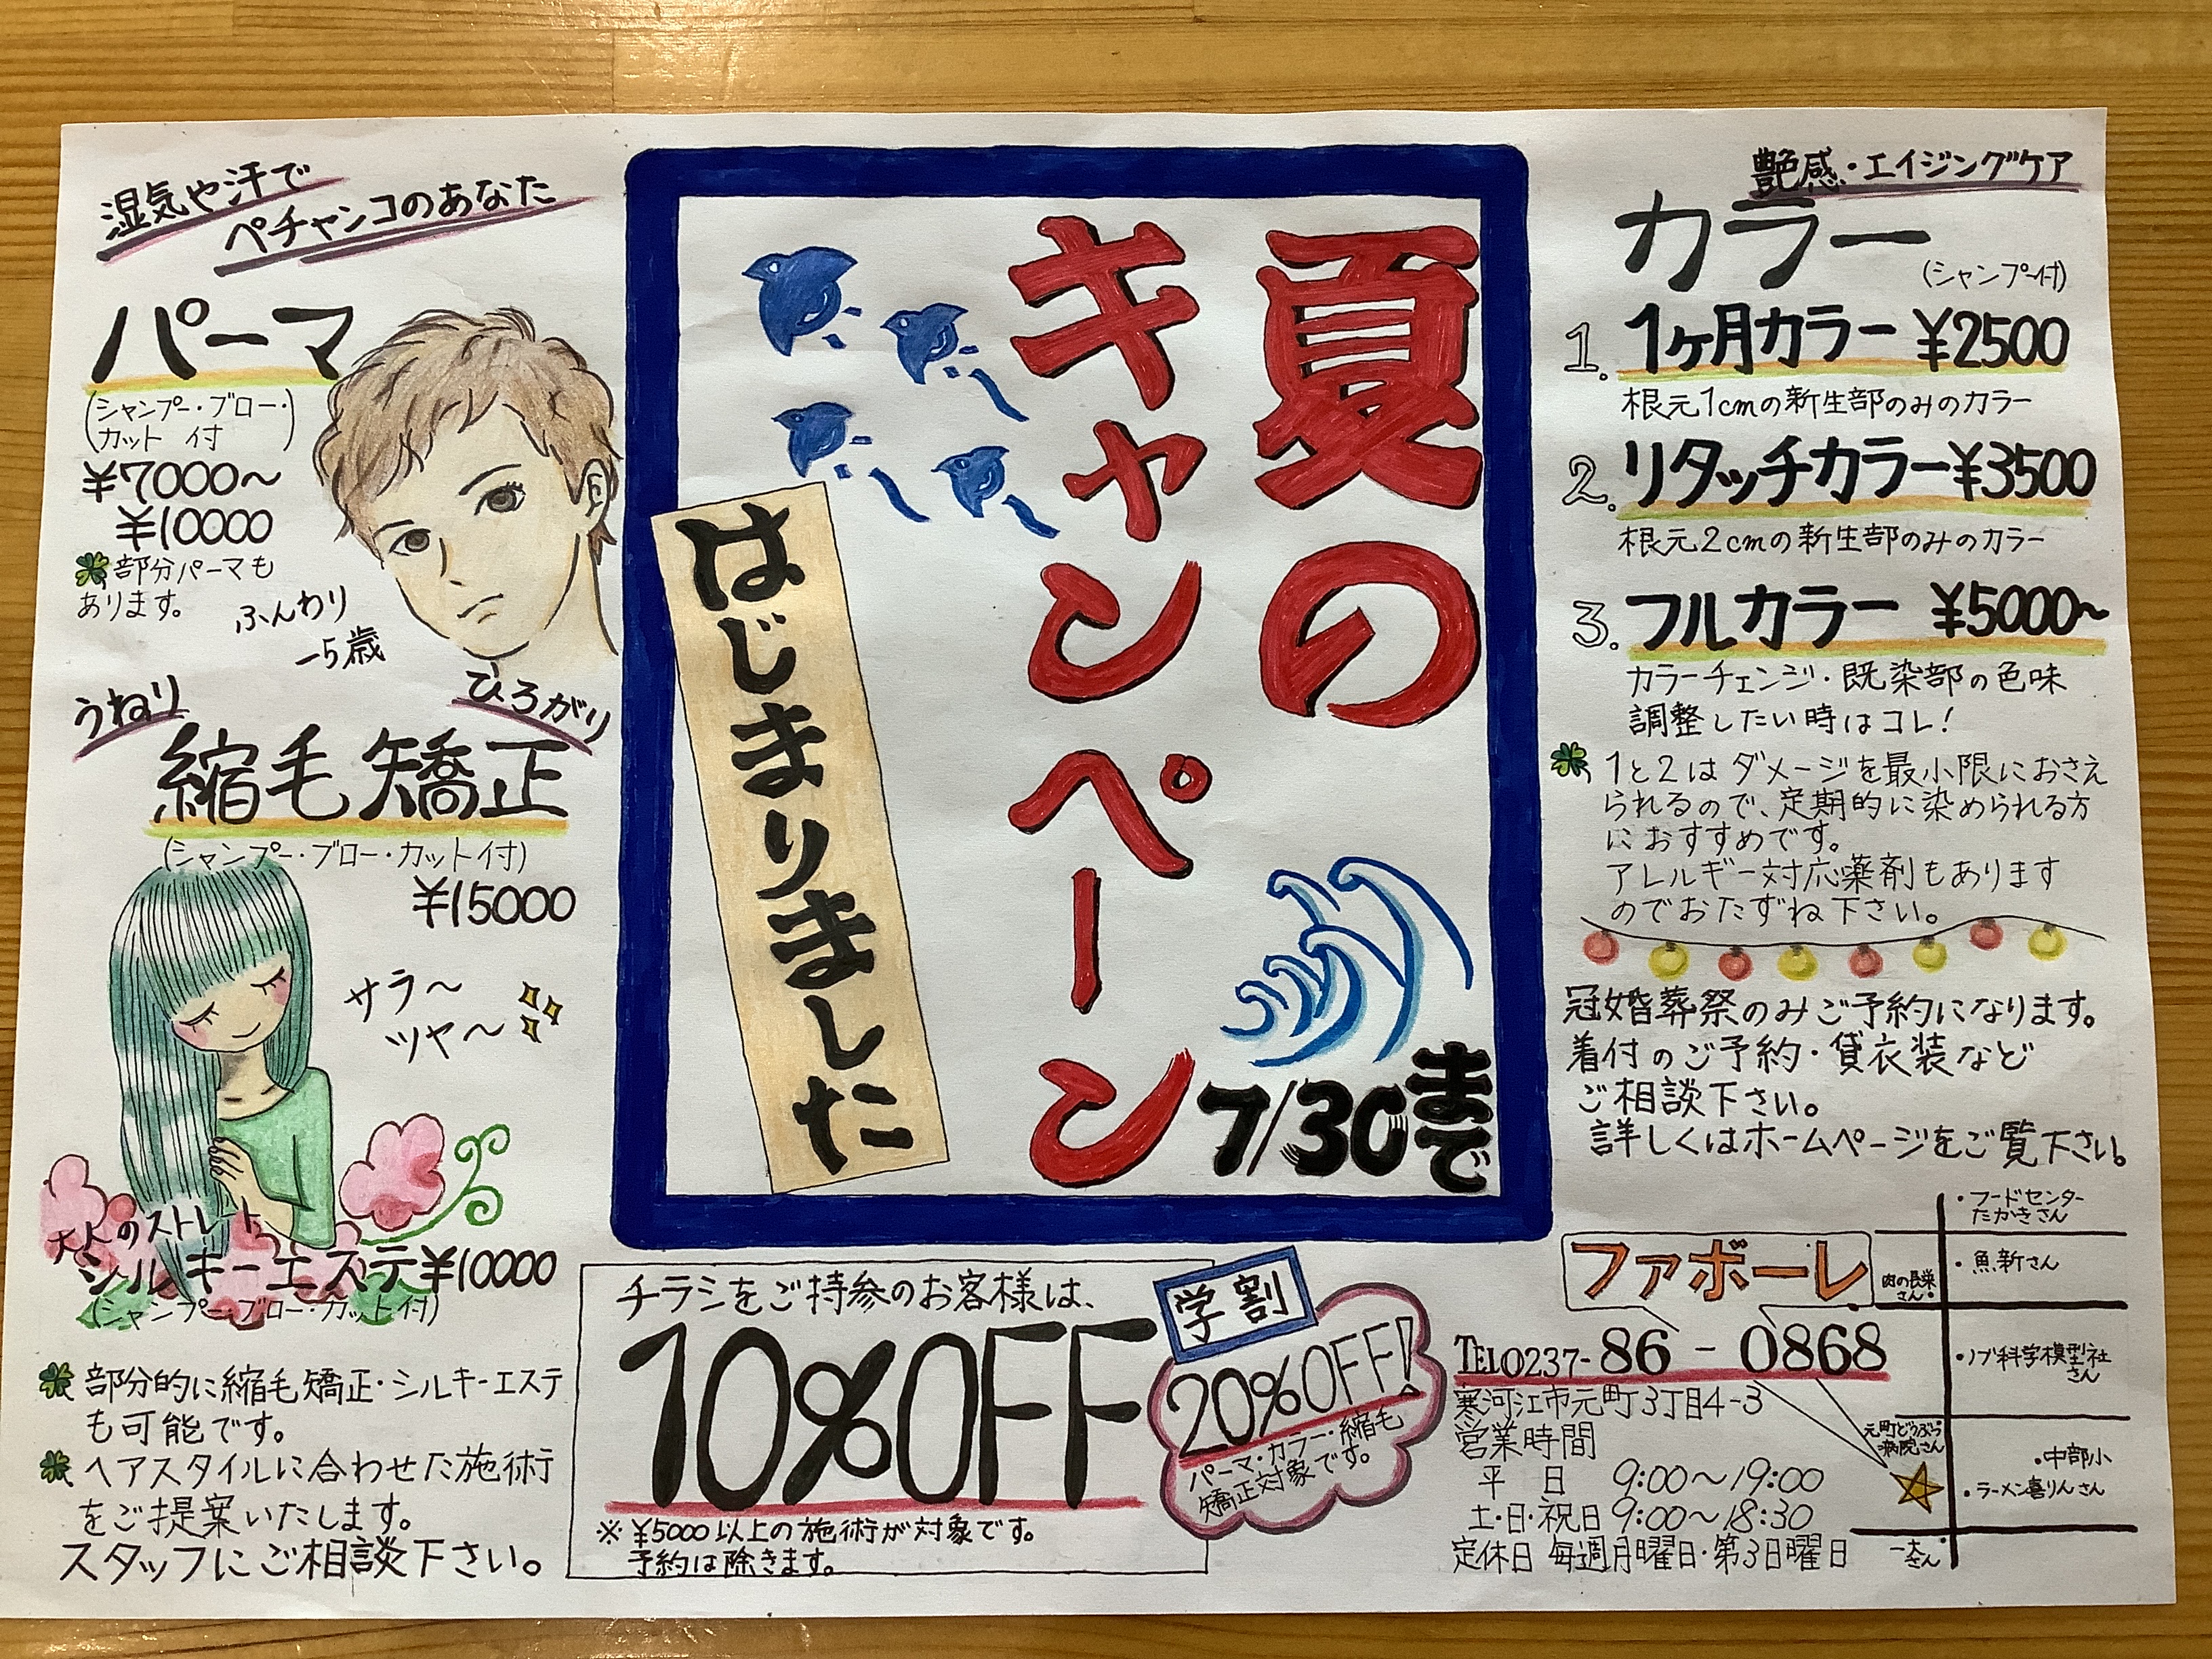 湿気や汗で
ペチャンコのあなた
パーマ
(シャンプー・ブロー・
カット 付)
¥7000～
¥10000
部分パーマも
あります。
ふんわり
-5歳
うねり
ひろがり
縮毛矯正
(シャンプー・ブロー・カット付)
¥15000
サラ～
ツヤ～
大人のストレート
シルキーエステ¥10000
(シャンプー・ブロー・カット付)
部分的に縮毛矯正・シルキーエステ
も可能です。
ヘアスタイルに合わせた施術
をご提案いたします。
スタッフにご相談下さい。
夏の
キャンペーン
はじまりました
7/30まで
チラシをご持参のお客様は、
10%OFF
※¥5000以上の施術が対象です。
予約は除きます。
学割
20%OFF!
パーマ・カラー・縮毛
矯正対象です。
艶感・エイジングケア
カラー
(シャンプー付)
1. 1ヶ月カラー ¥2500
根元1cmの新生部のみのカラー
2. リタッチカラー¥3500
根元2cmの新生部のみのカラー
3. フルカラー ¥5000～
カラーチェンジ・既染部の色味
調整したい時はコレ!
1と2はダメージを最小限におさえ
られるので、定期的に染められる方
におすすめです。
アレルギー対応薬剤もあります
のでおたずね下さい。
冠婚葬祭のみご予約になります。
着付のご予約・貸衣装など
ご相談下さい。
詳しくはホームページをご覧下さい。
ファボーレ
TEL0237-86-0868
寒河江市元町3丁目4-3
営業時間
平 日 9:00～19:00
土・日・祝日 9:00～18:30
定休日 毎週月曜日・第3日曜日
・フードセンター
たかきさん
・魚新さん
肉の長栄
さん・
・ノブ科学模型社
さん
元町どうぶつ
病院さん
・中部小
・ラーメン喜りんさん